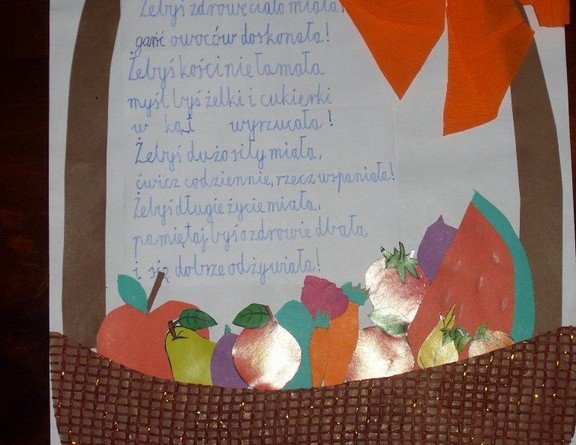 Żebyś zdrowe ciało miała,
garść owoców doskonała!
Żebyś kości nie łamała
myśl byś żelki i cukierki
w kąt wyrzucała!
Żebyś dużo siły miała,
ćwicz codziennie, rzecz wspaniała!
Żebyś długie życie miała,
pamiętaj byś o zdrowie dbała
i się dobrze odżywiała!